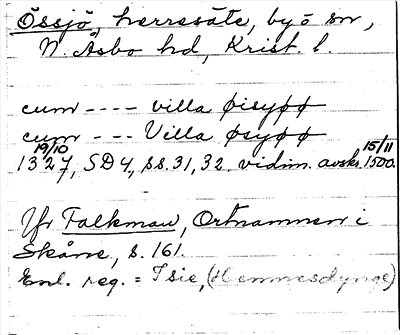 Össjö, herresäte, by ō sn,
N. Åsbo hd, Krist. l.
cum ---- villa øisyøø
cum --- Villa øsyøø
19/10 15/11
1327, SD4, ss. 31, 32. vidim. avskr. 1500.
Jfr Falkman, Ortnamnen i
Skåne, s. 161.
Enl. reg. = Isie, (Hemmesdynge)